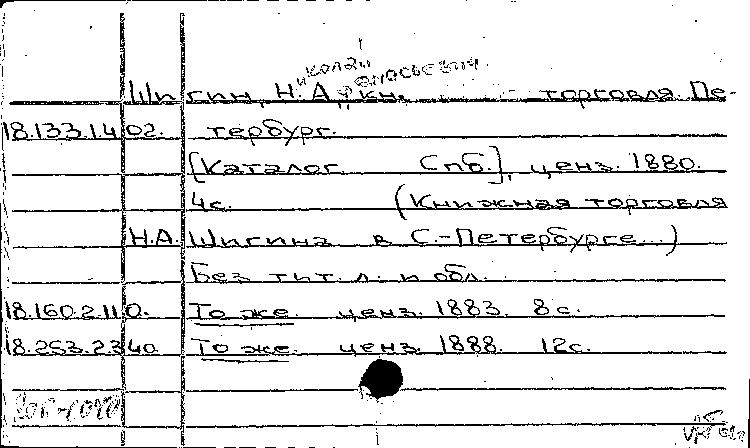 Шигин, Н.А., кн. торговля. Пе-
18.133.1.402. тербург.
[Каталог Спб.], ценз. 1880.
4с. (Книжная торговля
Н.А. Шигина в С-Петербурге...)
Без тит. л. и обл.
18.160.2.110. То же. ценз. 1883. 8с.
18.253.2.340. То же. ценз. 1888. 12с.